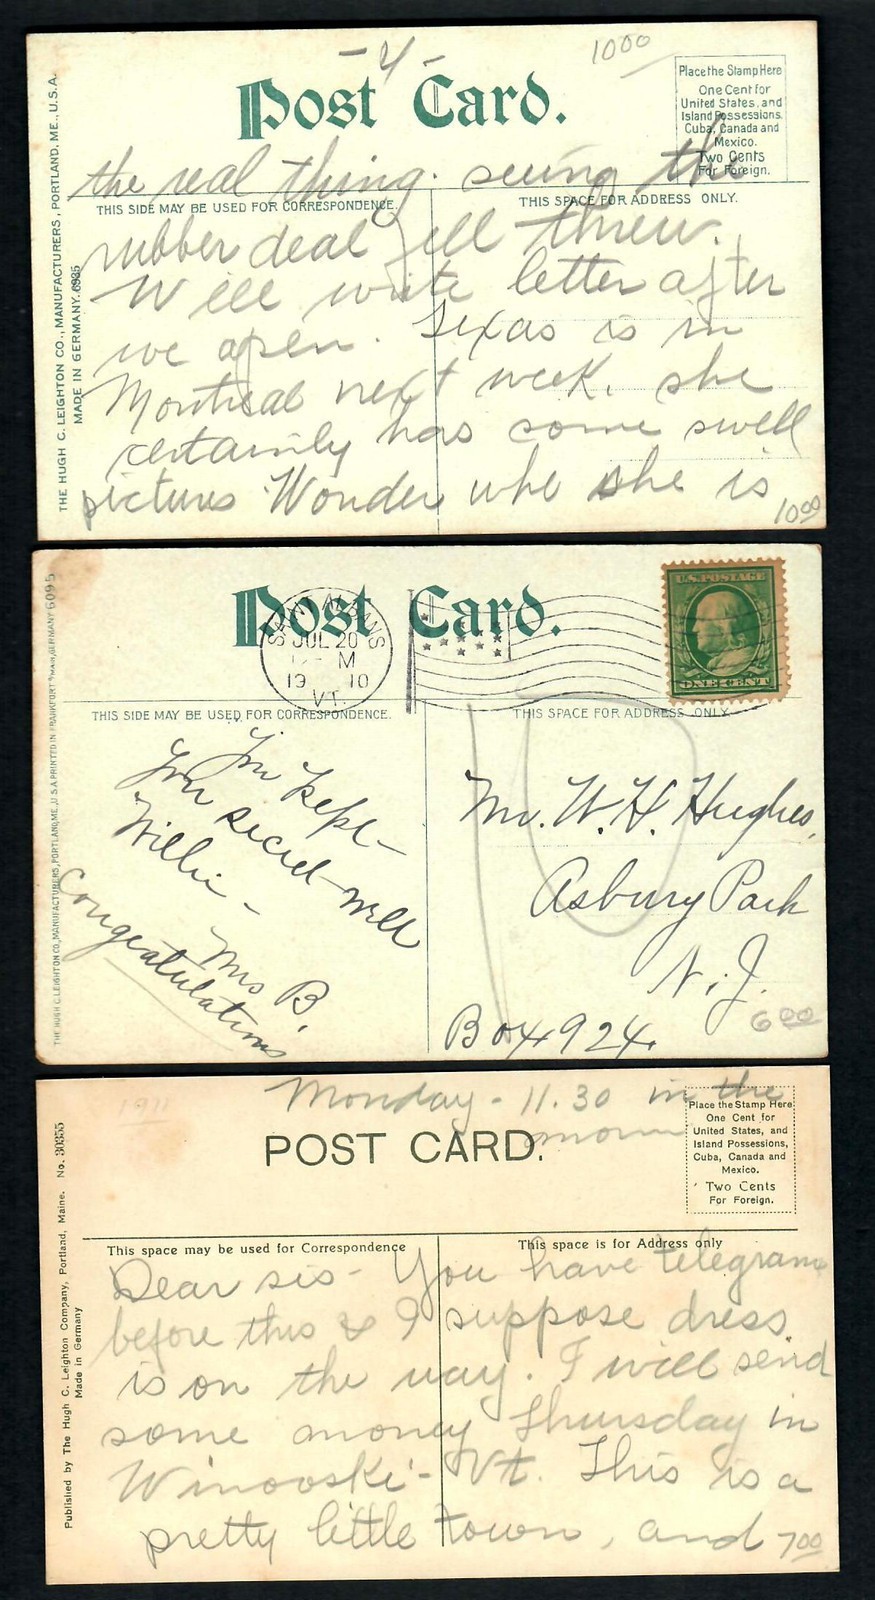 - 4 -
1000
Post Card.
Place the Stamp Here
One Cent for
United States, and
Island Possessions,
Cuba, Canada and
Mexico.
Two Cents
For Foreign.
THE HUGH C. LEIGHTON CO., MANUFACTURERS, PORTLAND, ME., U.S.A.
MADE IN GERMANY. 6935
THIS SIDE MAY BE USED FOR CORRESPONDENCE.
THIS SPACE FOR ADDRESS ONLY.
the real thing. seeing the
rubber deal fell threw.
Will write letter after
we open. Texas is in
Montreal next week, she
certainly has some swell
pictures Wonder who she is
10 00
Post Card.
SAINT ALBANS
JUL 20
M
19 10
VT.
U.S. POSTAGE
ONE CENT
THE HUGH C. LEIGHTON CO., MANUFACTURERS, PORTLAND, ME., U.S.A. PRINTED IN FRANKFORT GERMANY 6095
THIS SIDE MAY BE USED FOR CORRESPONDENCE.
THIS SPACE FOR ADDRESS ONLY.
You kept
your secret well
Willie -
Mrs B.
Congratulations
Mr. W. H. Hughes,
Asbury Park
N. J.
Box 924.
6 00
1911
Monday - 11.30 in the
morn
POST CARD.
Place the Stamp Here
One Cent for
United States, and
Island Possessions,
Cuba, Canada and
Mexico.
Two Cents
For Foreign.
Published by The Hugh C. Leighton Company, Portland, Maine. No. 30355
Made in Germany
This space may be used for Correspondence
This space is for Address only
Dear sis - You have telegram
before this & I suppose dress
is on the way. I will send
some money Thursday in
Winooski - Vt. This is a
pretty little town, and
7 00